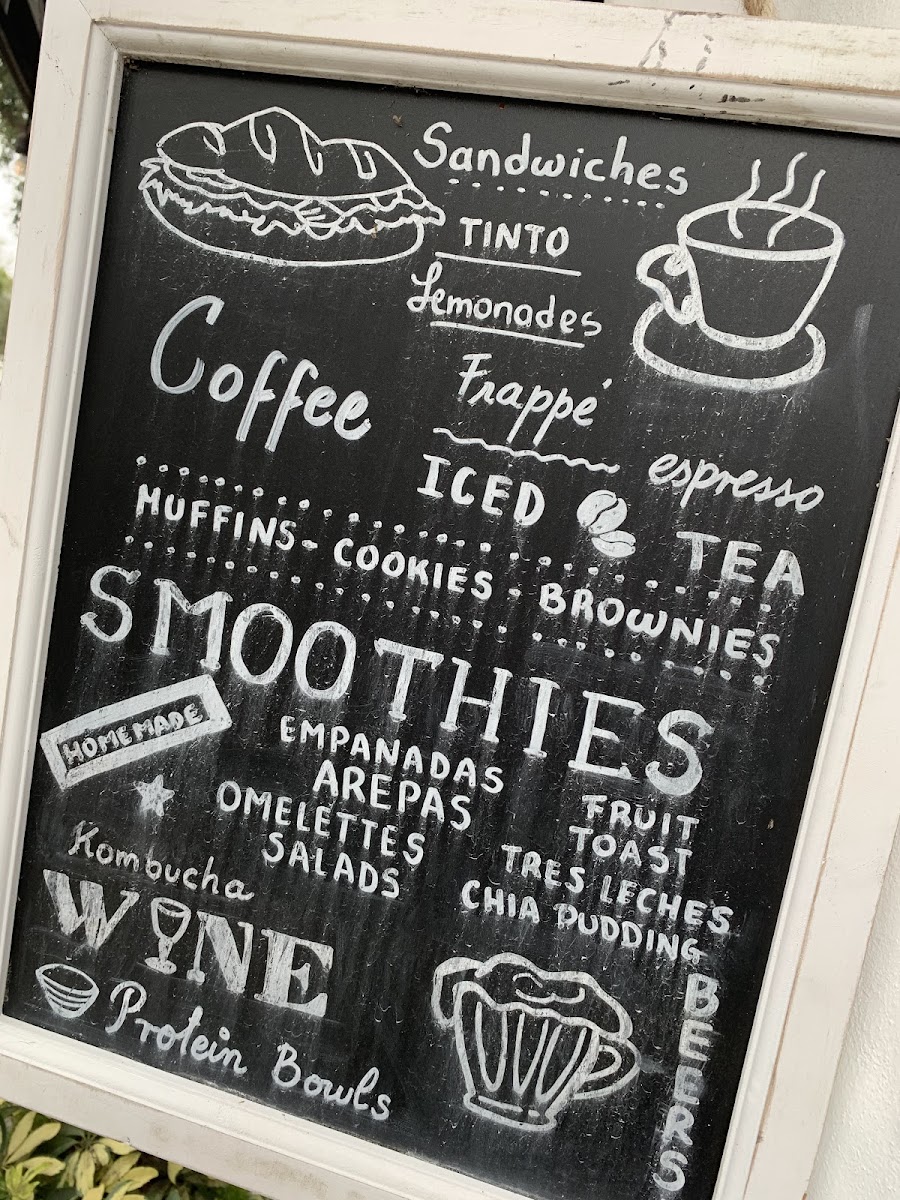 Sandwiches
TINTO
Lemonades
Coffee
Frappé
espresso
ICED TEA
MUFFINS - COOKIES - BROWNIES
SMOOTHIES
HOMEMADE
EMPANADAS
AREPAS
OMELETTES
SALADS
FRUIT
TOAST
TRES LECHES
CHIA PUDDING
Kombucha
WINE
Protein Bowls
BEERS